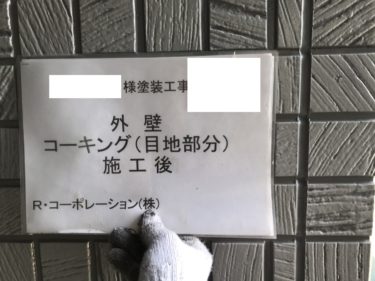 様塗装工事
外壁
コーキング(目地部分)
施工後
R・コーポレーション(株)